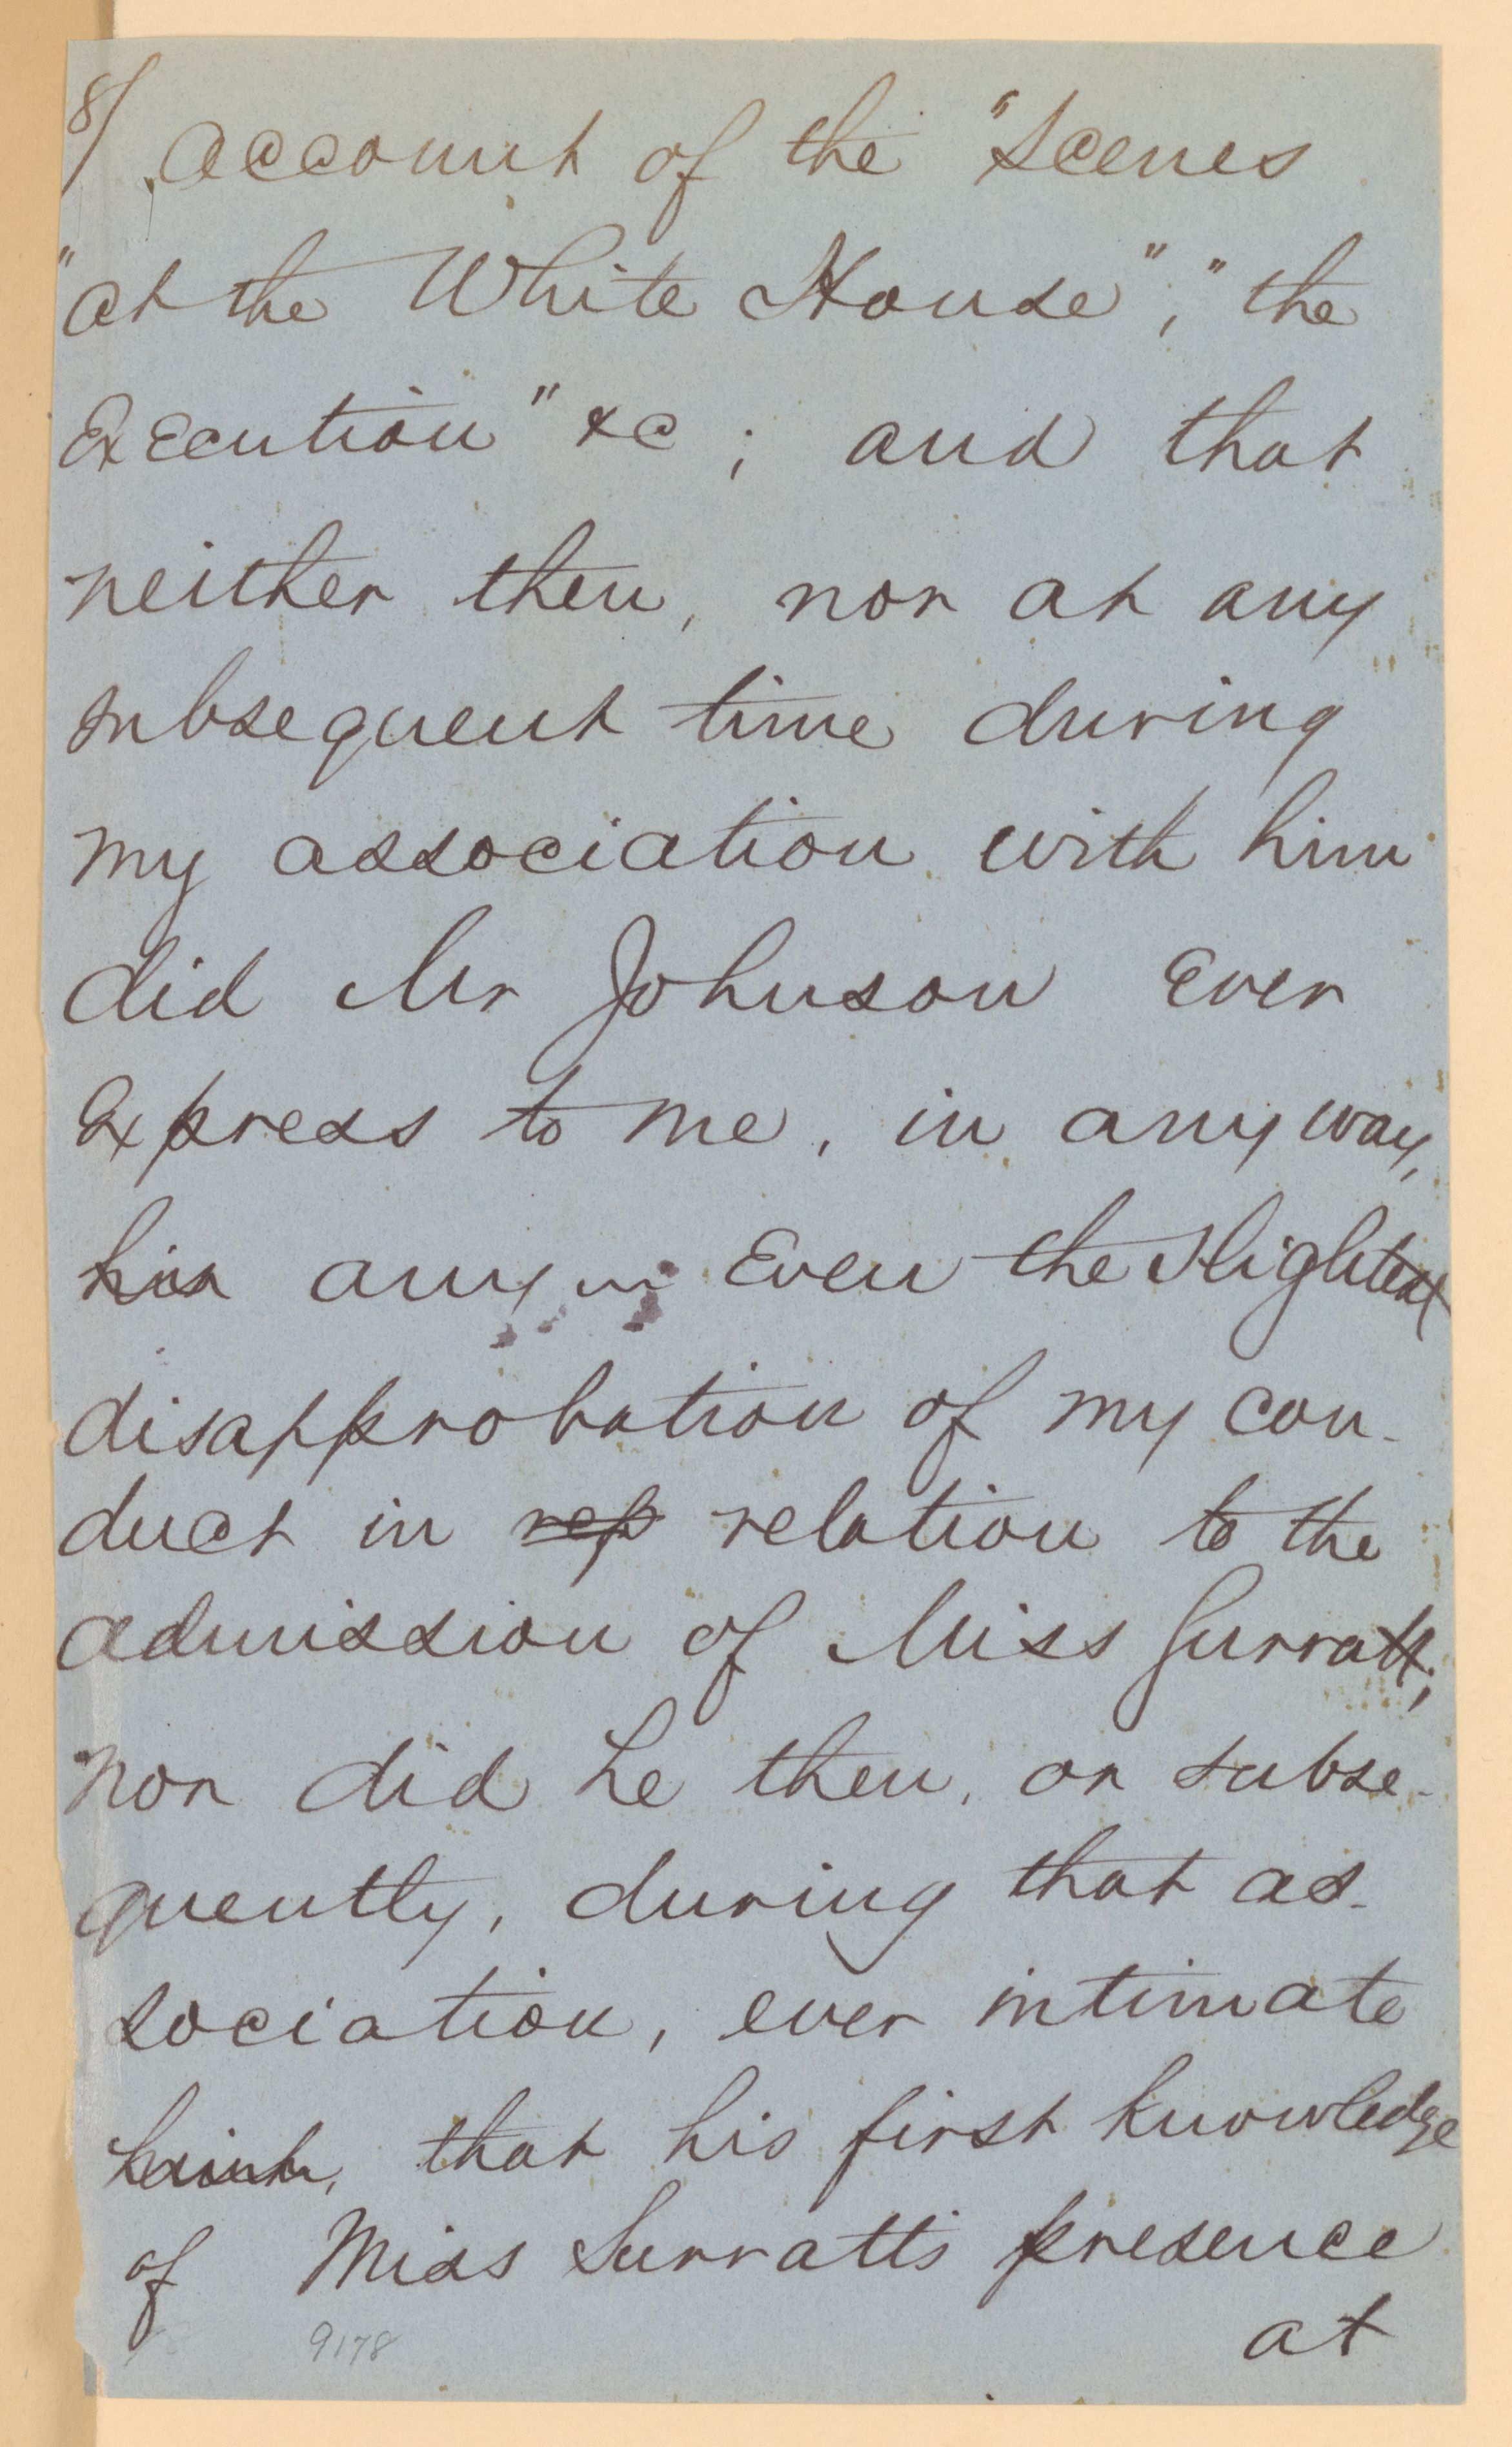 8/ account of the "Scenes
"at the White House"; "the
Execution" &c; and that
neither then, nor at any
subsequent time during
my association with him
did Mr Johnson ever
express to me, in any way,
his any Even the slightest
disapprobation of my con-
duct in rep relation to the
admission of Miss Surratt;
nor did he then, or subse-
quently, during that as-
sociation, ever intimate
that his first knowledge
of Miss Surratt's presence
at
9178